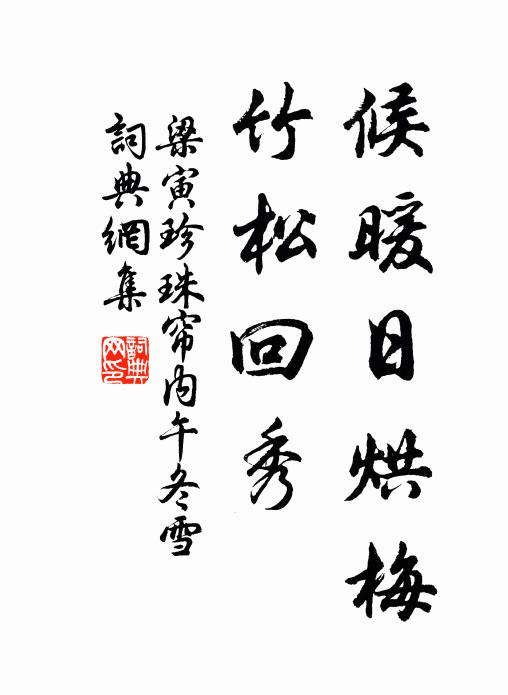 候暖日烘梅
竹松回秀
梁寅珍珠帘内午冬雪
詞典網集
詞典网印